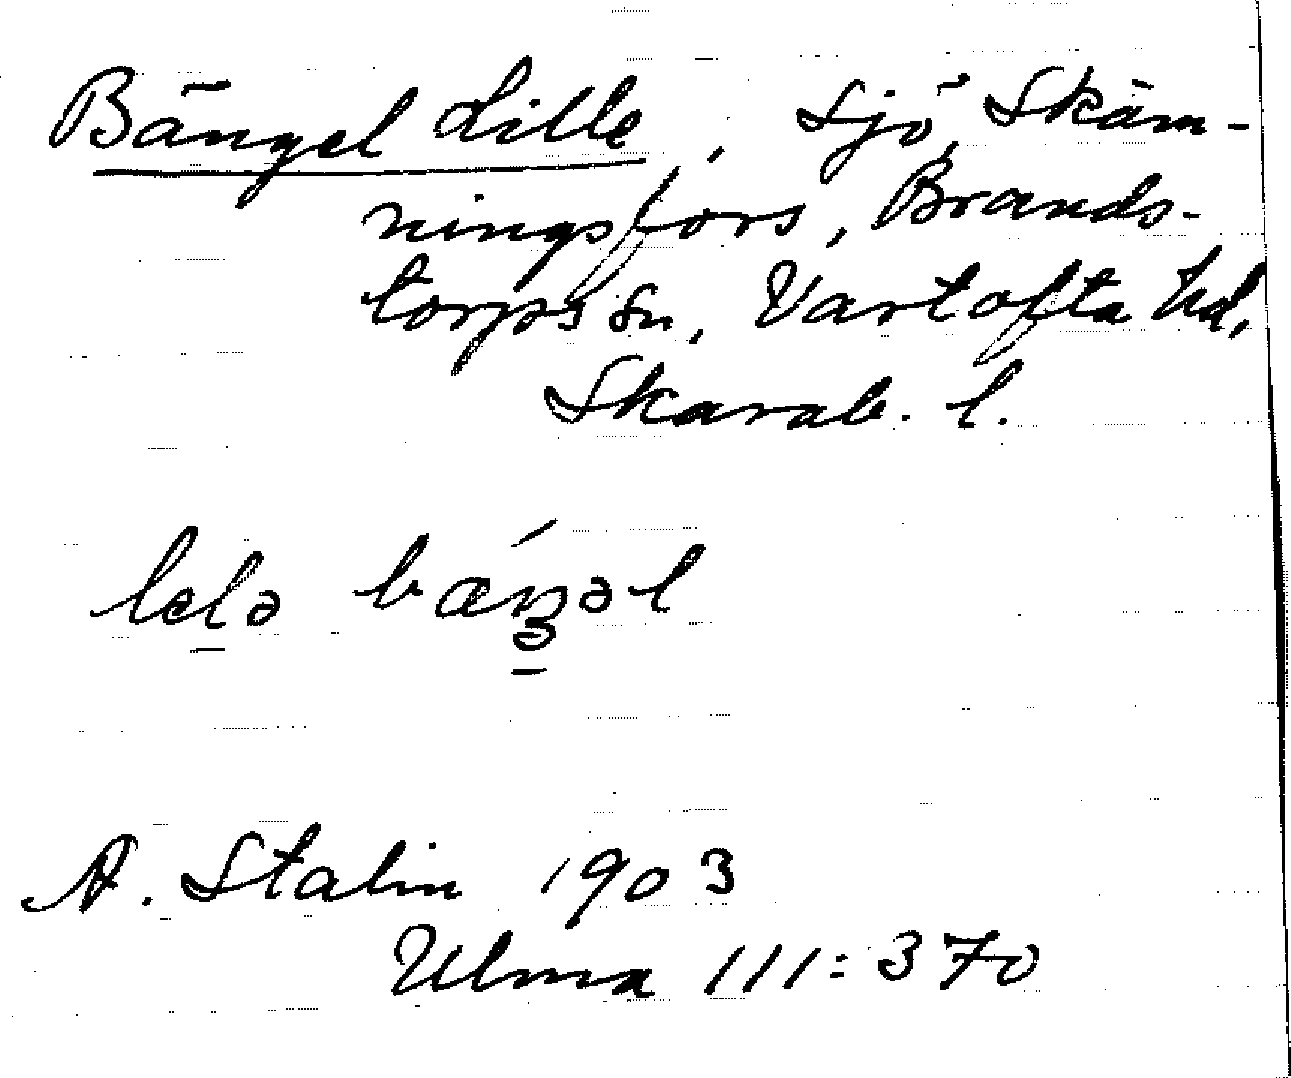 Bängel Lille, sjö, Skäm-
ningsfors, Brands-
torps sn, Vartofta hd,
Skarab. l.
lelə bǽŋəl
A. Stalin 1903
Ulma 111:370